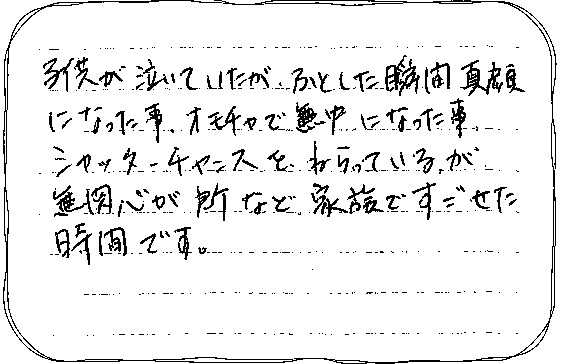 子供が泣いていたが、ふとした瞬間真顔
になった事、オモチャで無中になった事、
シャッターチャンスをねらっている、が
無関心が所など、家族ですごせた
時間です。